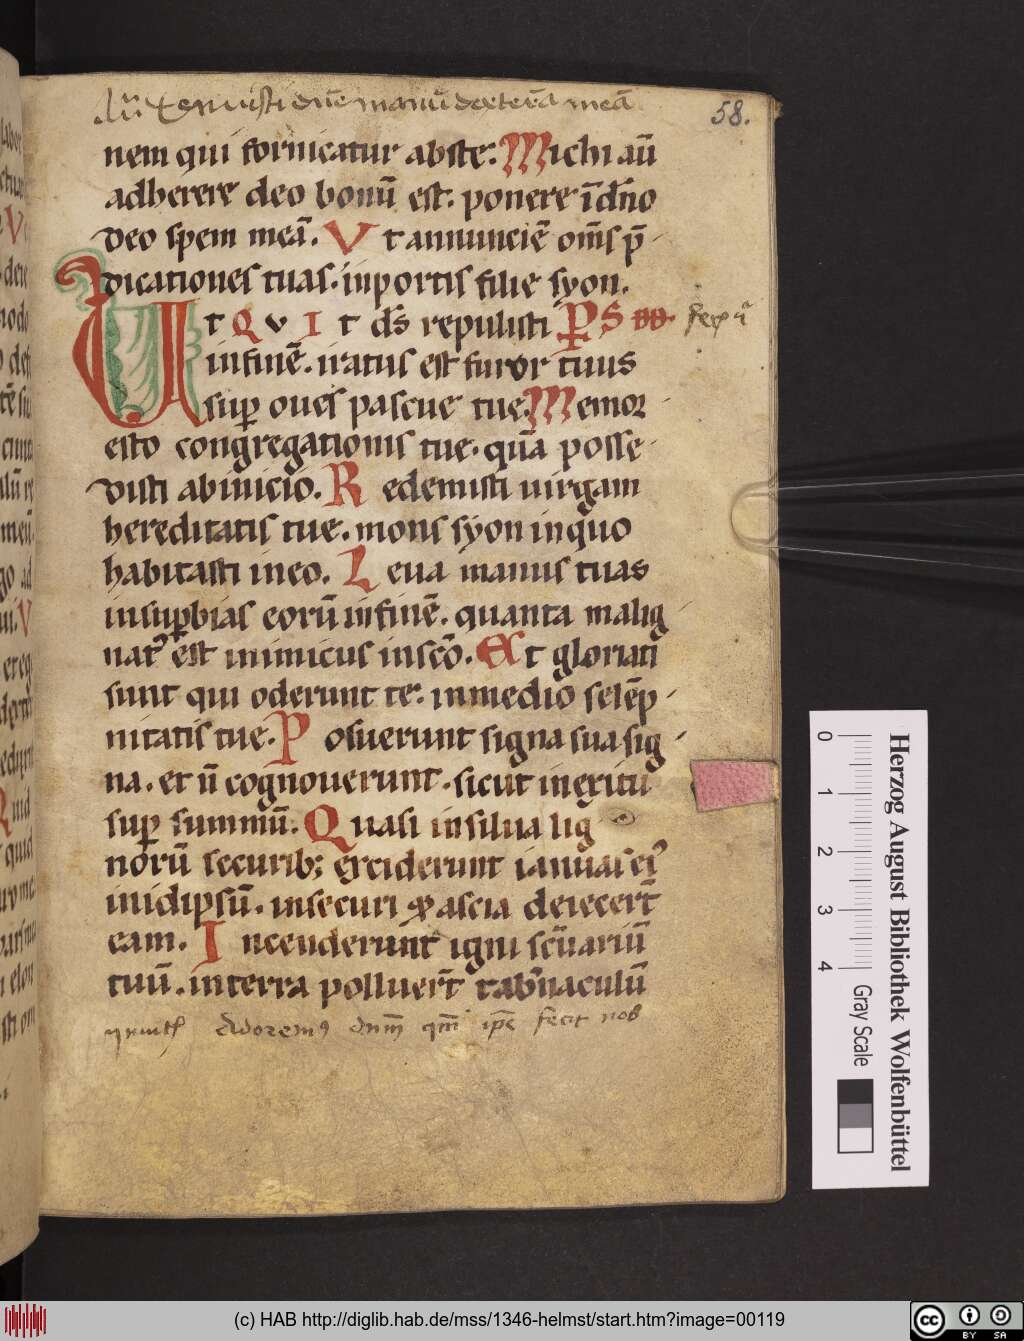 Tenuisti dn̄e manū dexterā meā
58.
nem qui fornicatur abste. Michi aū
adherere deo bonū est. ponere īdn̄o
deo spem meā. Vt annunciē om̄s p̄
dicationes tuas. inportis filie syon.
Ut QVIt ds̄ repulisti PS
infinē. iratus est furor tuus
sup oues pascue tue. Memor
esto congregationis tue. quā posse
disti abinicio. Redemisti uirgam
hereditatis tue. mons syon inquo
habitasti ineo. Leua manus tuas
insupbias eorū infinē. quanta malig
nat᾽ est inimicus inscō. Et gloriati
sunt qui oderunt te. inmedio solēp
nitatis tue. Posuerunt signa sua sig
na. et n̄ cognouerunt. sicut inexitu
sup summū. Quasi insilua lig
norū securib; exciderunt ianuas ei᾽
inidipsū. insecuri & ascia deiecert̄
eam. Incenderunt igni scūariū
tuū. interra polluert̄ tab̄naculū
Adorem᾽ dnm̄ qm̄ ip̄e fecit nos
Herzog August Bibliothek Wolfenbüttel
0 1 2 3 4 Gray Scale
(c) HAB http://diglib.hab.de/mss/1346-helmst/start.htm?image=00119
cc BY SA